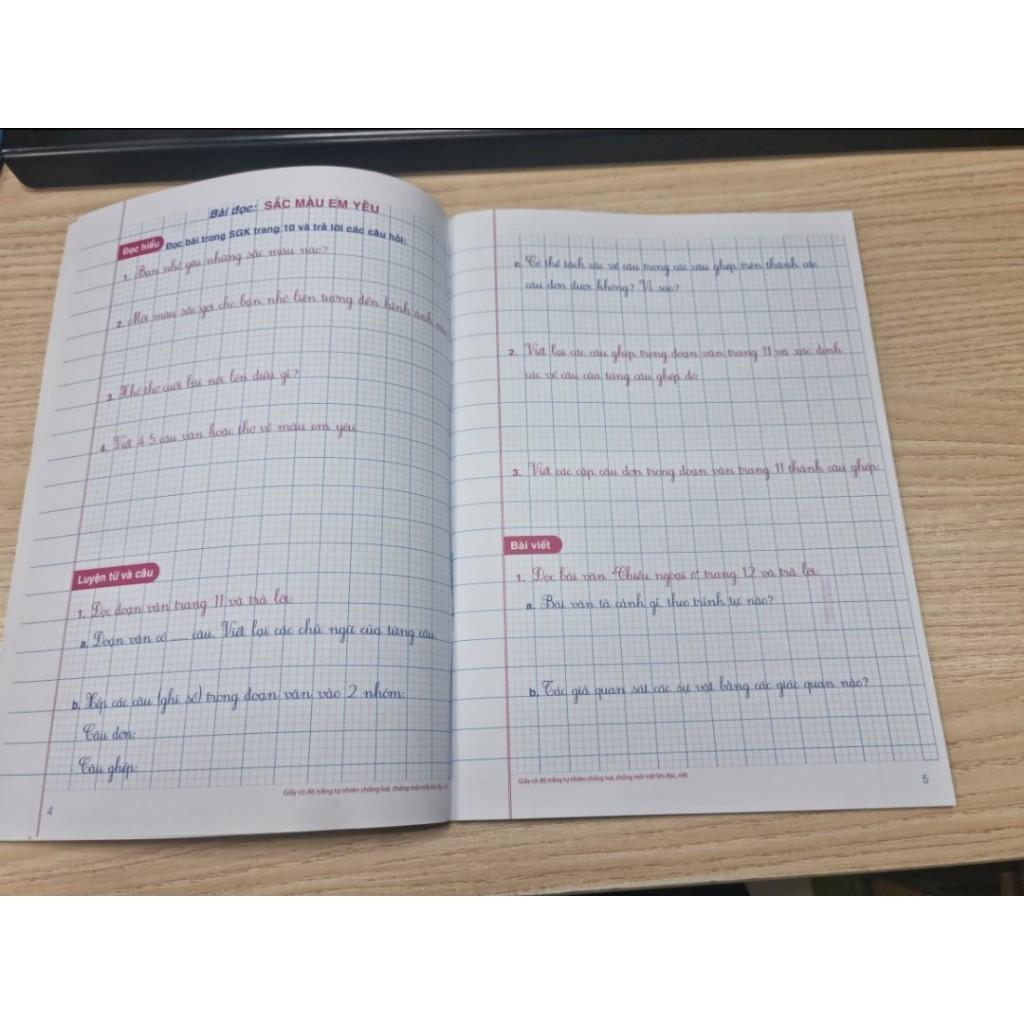 Bài đọc: SẮC MÀU EM YÊU
Đọc hiểu Đọc bài trong SGK trang 10 và trả lời các câu hỏi:
1. Bạn nhỏ yêu những sắc màu nào?
2. Mỗi màu sắc gợi cho bạn nhỏ liên tưởng đến hình ảnh
3. Khổ thơ cuối bài nói lên điều gì?
4. Viết 4-5 câu văn hoặc thơ về màu em yêu.
Luyện từ và câu
1. Đọc đoạn văn trang 11 và trả lời:
a. Đoạn văn có ...... câu. Viết lại các chủ ngữ của từng câu.
b. Xếp các câu (ghi số) trong đoạn văn vào 2 nhóm:
Câu đơn:
Câu ghép:
Giấy có độ trắng tự nhiên chống loá, chống mỏi mắt khi đọc, viết
4
c. Có thể tách các vế câu trong các câu ghép trên thành các
câu đơn được không? Vì sao?
2. Viết lại các câu ghép trong đoạn văn trang 11 và xác định
các vế câu của từng câu ghép đó.
3. Viết các cặp câu đơn trong đoạn văn trang 11 thành câu ghép:
Bài viết
1. Đọc bài văn "Chiều ngoại ô" trang 12 và trả lời:
a. Bài văn tả cảnh gì, theo trình tự nào?
b. Tác giả quan sát các sự vật bằng các giác quan nào?
Giấy có độ trắng tự nhiên chống loá, chống mỏi mắt khi đọc, viết
5